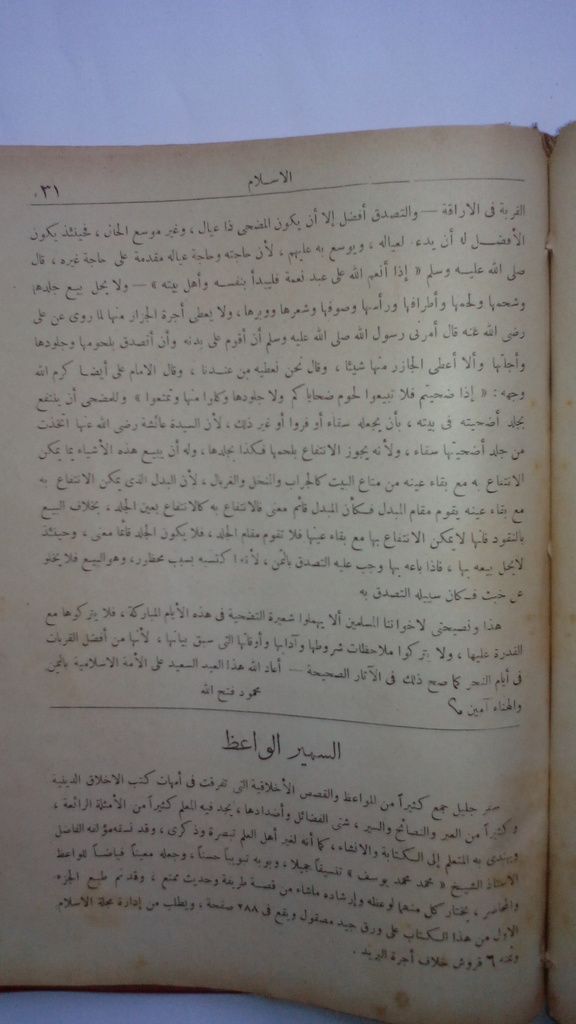 الاسلام ٣١
القربة فى الاراقة — والتصدق أفضل إلا أن يكون المضحى ذا عيال ، وغير موسع الحال ، فحينئذ يكون
الأفضل له أن يدعه لعياله ، ويوسع به عليهم ، لأن حاجته وحاجة عياله مقدمة على حاجة غيره ، قال
صلى الله عليه وسلم « إذا أنعم الله على عبد نعمة فليبدأ بنفسه وأهل بيته » — ولا يحل بيع جلدها
وشحمها ولحمها وأطرافها ورأسها وصوفها وشعرها ووبرها ، ولا يعطى أجرة الجزار منها لما روى عن على
رضى الله عنه قال أمرنى رسول الله صلى الله عليه وسلم أن أقوم على بدنه وأن أتصدق بلحومها وجلودها
وأجلتها وألا أعطى الجازر منها شيئا ، وقال نحن نعطيه من عندنا ، وقال الامام على أيضا كرم الله
وجهه : « إذا ضحيتم فلا تبيعوا لحوم ضحاياكم ولا جلودها وكلوا منها وتمتعوا » وللمضحى أن ينتفع
بجلد أضحيته فى بيته ، بأن يجعله سقاء أو فروا أو غير ذلك ، لأن السيدة عائشة رضى الله عنها اتخذت
من جلد أضحيتها سقاء ، ولأنه يجوز الانتفاع بلحمها فكذا بجلدها ، وله أن يبيع هذه الأشياء بما يمكن
الانتفاع به مع بقاء عينه من متاع البيت كالجراب والمنخل والغربال ، لأن البدل الذى يمكن الانتفاع به
مع بقاء عينه يقوم مقام المبدل فكأن المبدل قائم معنى فالانتفاع به كالانتفاع بعين الجلد ، بخلاف البيع
بالنقود فانها لايمكن الانتفاع بها مع بقاء عينها فلا تقوم مقام الجلد ، فلا يكون الجلد قائما معنى ، وحينئذ
لايحل بيعه بها ، فاذا باعه بها وجب عليه التصدق بالثمن ، لأنه اكتسبه بسبب محظور ، وهو البيع فلا يخلو
عن خبث فكان سبيله التصدق به
هذا ونصيحتى لاخواننا المسلمين ألا يهملوا شعيرة التضحية فى هذه الأيام المباركة ، فلا يتركوها مع
القدرة عليها ، ولا يتركوا ملاحظات شروطها وآدابها وأوقاتها التى سبق بيانها ، لأنها من أفضل القربات
فى أيام النحر كما صح ذلك فى الآثار الصحيحة — أعاد الله هذا العيد السعيد على الأمة الاسلامية باليمن
والهناء آمين محمود فتح الله
السمير الواعظ
سفر جليل جمع كثيراً من المواعظ والقصص الأخلاقية التى تفرقت فى أمهات كتب الاخلاق الدينية
وكثيراً من العبر والنصائح والسير ، شتى الفضائل وأضدادها ، يجد فيه المعلم كثيراً من الأمثلة الرائعة ،
ويهتدى به المتعلم إلى الكتابة والانشاء ، كما أنه لغير أهل العلم تبصرة وذكرى ، وقد نسقه مؤلفه الفاضل
الاستاذ الشيخ « محمد محمد يوسف » تنسيقاً جميلا ، وبوبه تبويباً حسناً ، وجعله معيناً فياضاً للواعظ
والمحاضر ، يختار كل منهما لوعظه وإرشاده ماشاء من قصة طريفة وحديث ممتع ، وقد تم طبع الجزء
الأول من هذا الكتاب على ورق جيد مصقول ويقع فى ٢٨٨ صفحة ، ويطلب من إدارة مجلة الاسلام
وثمنه ٦ قروش خلاف أجرة البريد .